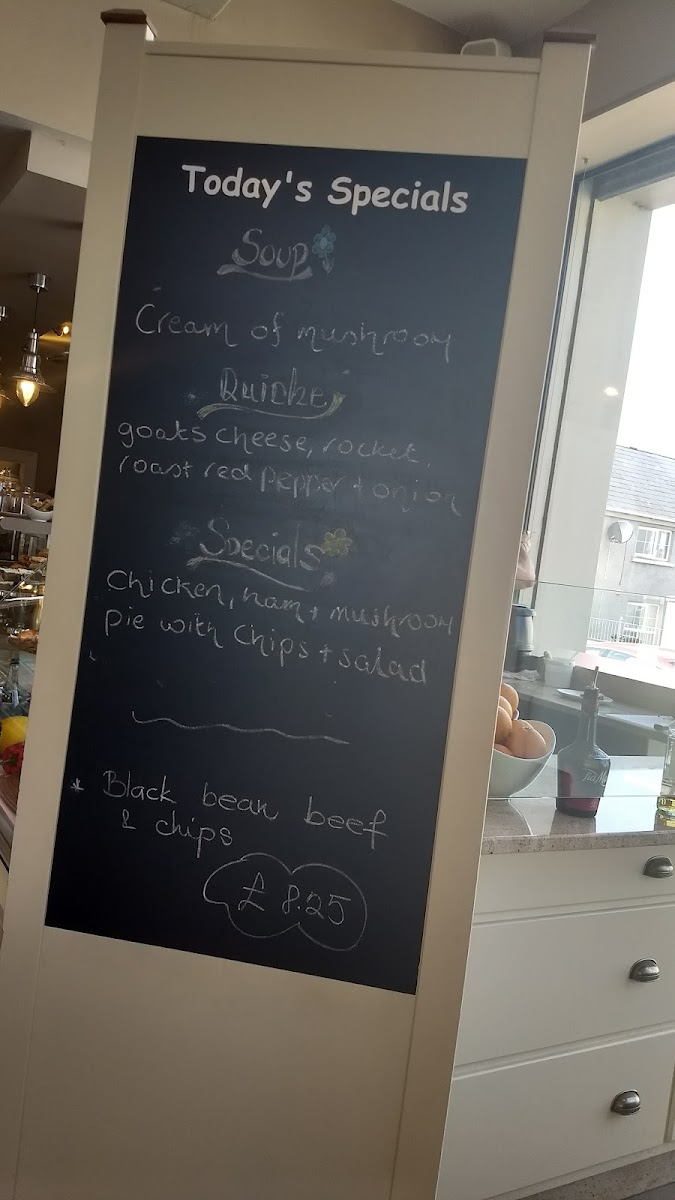 Today's Specials
Soup
Cream of mushroom
Quiche
goats cheese, rocket,
roast red pepper + onion
Specials
Chicken, ham + mushroom
pie with chips + salad
* Black bean beef
& chips
£ 8.25
Tia Maria